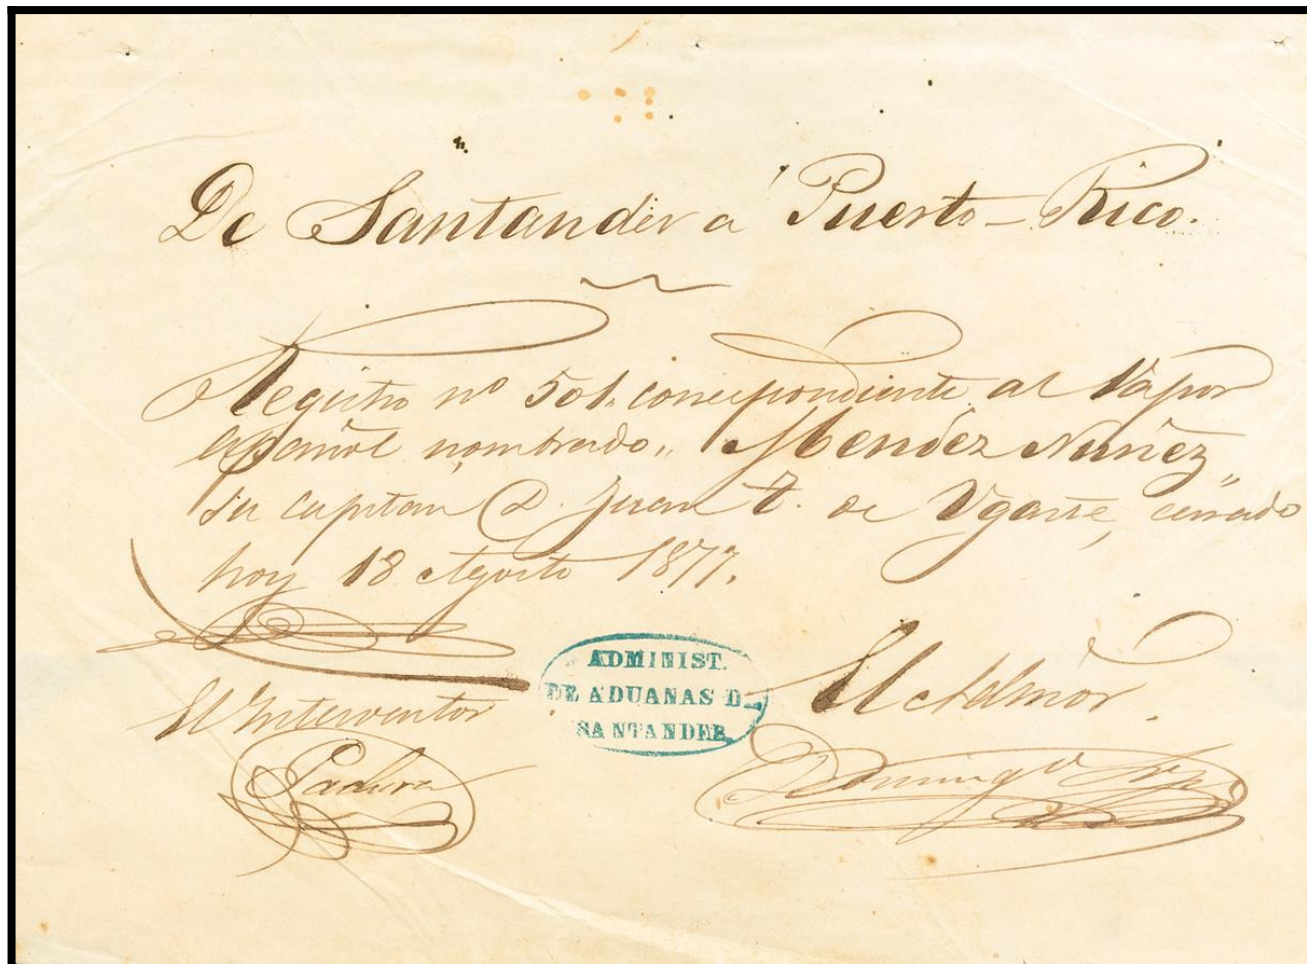 De Santander a Puerto-Rico.
Registro nº 501. correspondiente al Vapor
español nombrado „ Mendez Nuñez „
su capitan D. Juan T. de Ygarte, cerrado
hoy 18 Agosto 1877.
El Interventor
El Admor.
ADMINIST.
DE ADUANAS D.
SANTANDER.
Domingo